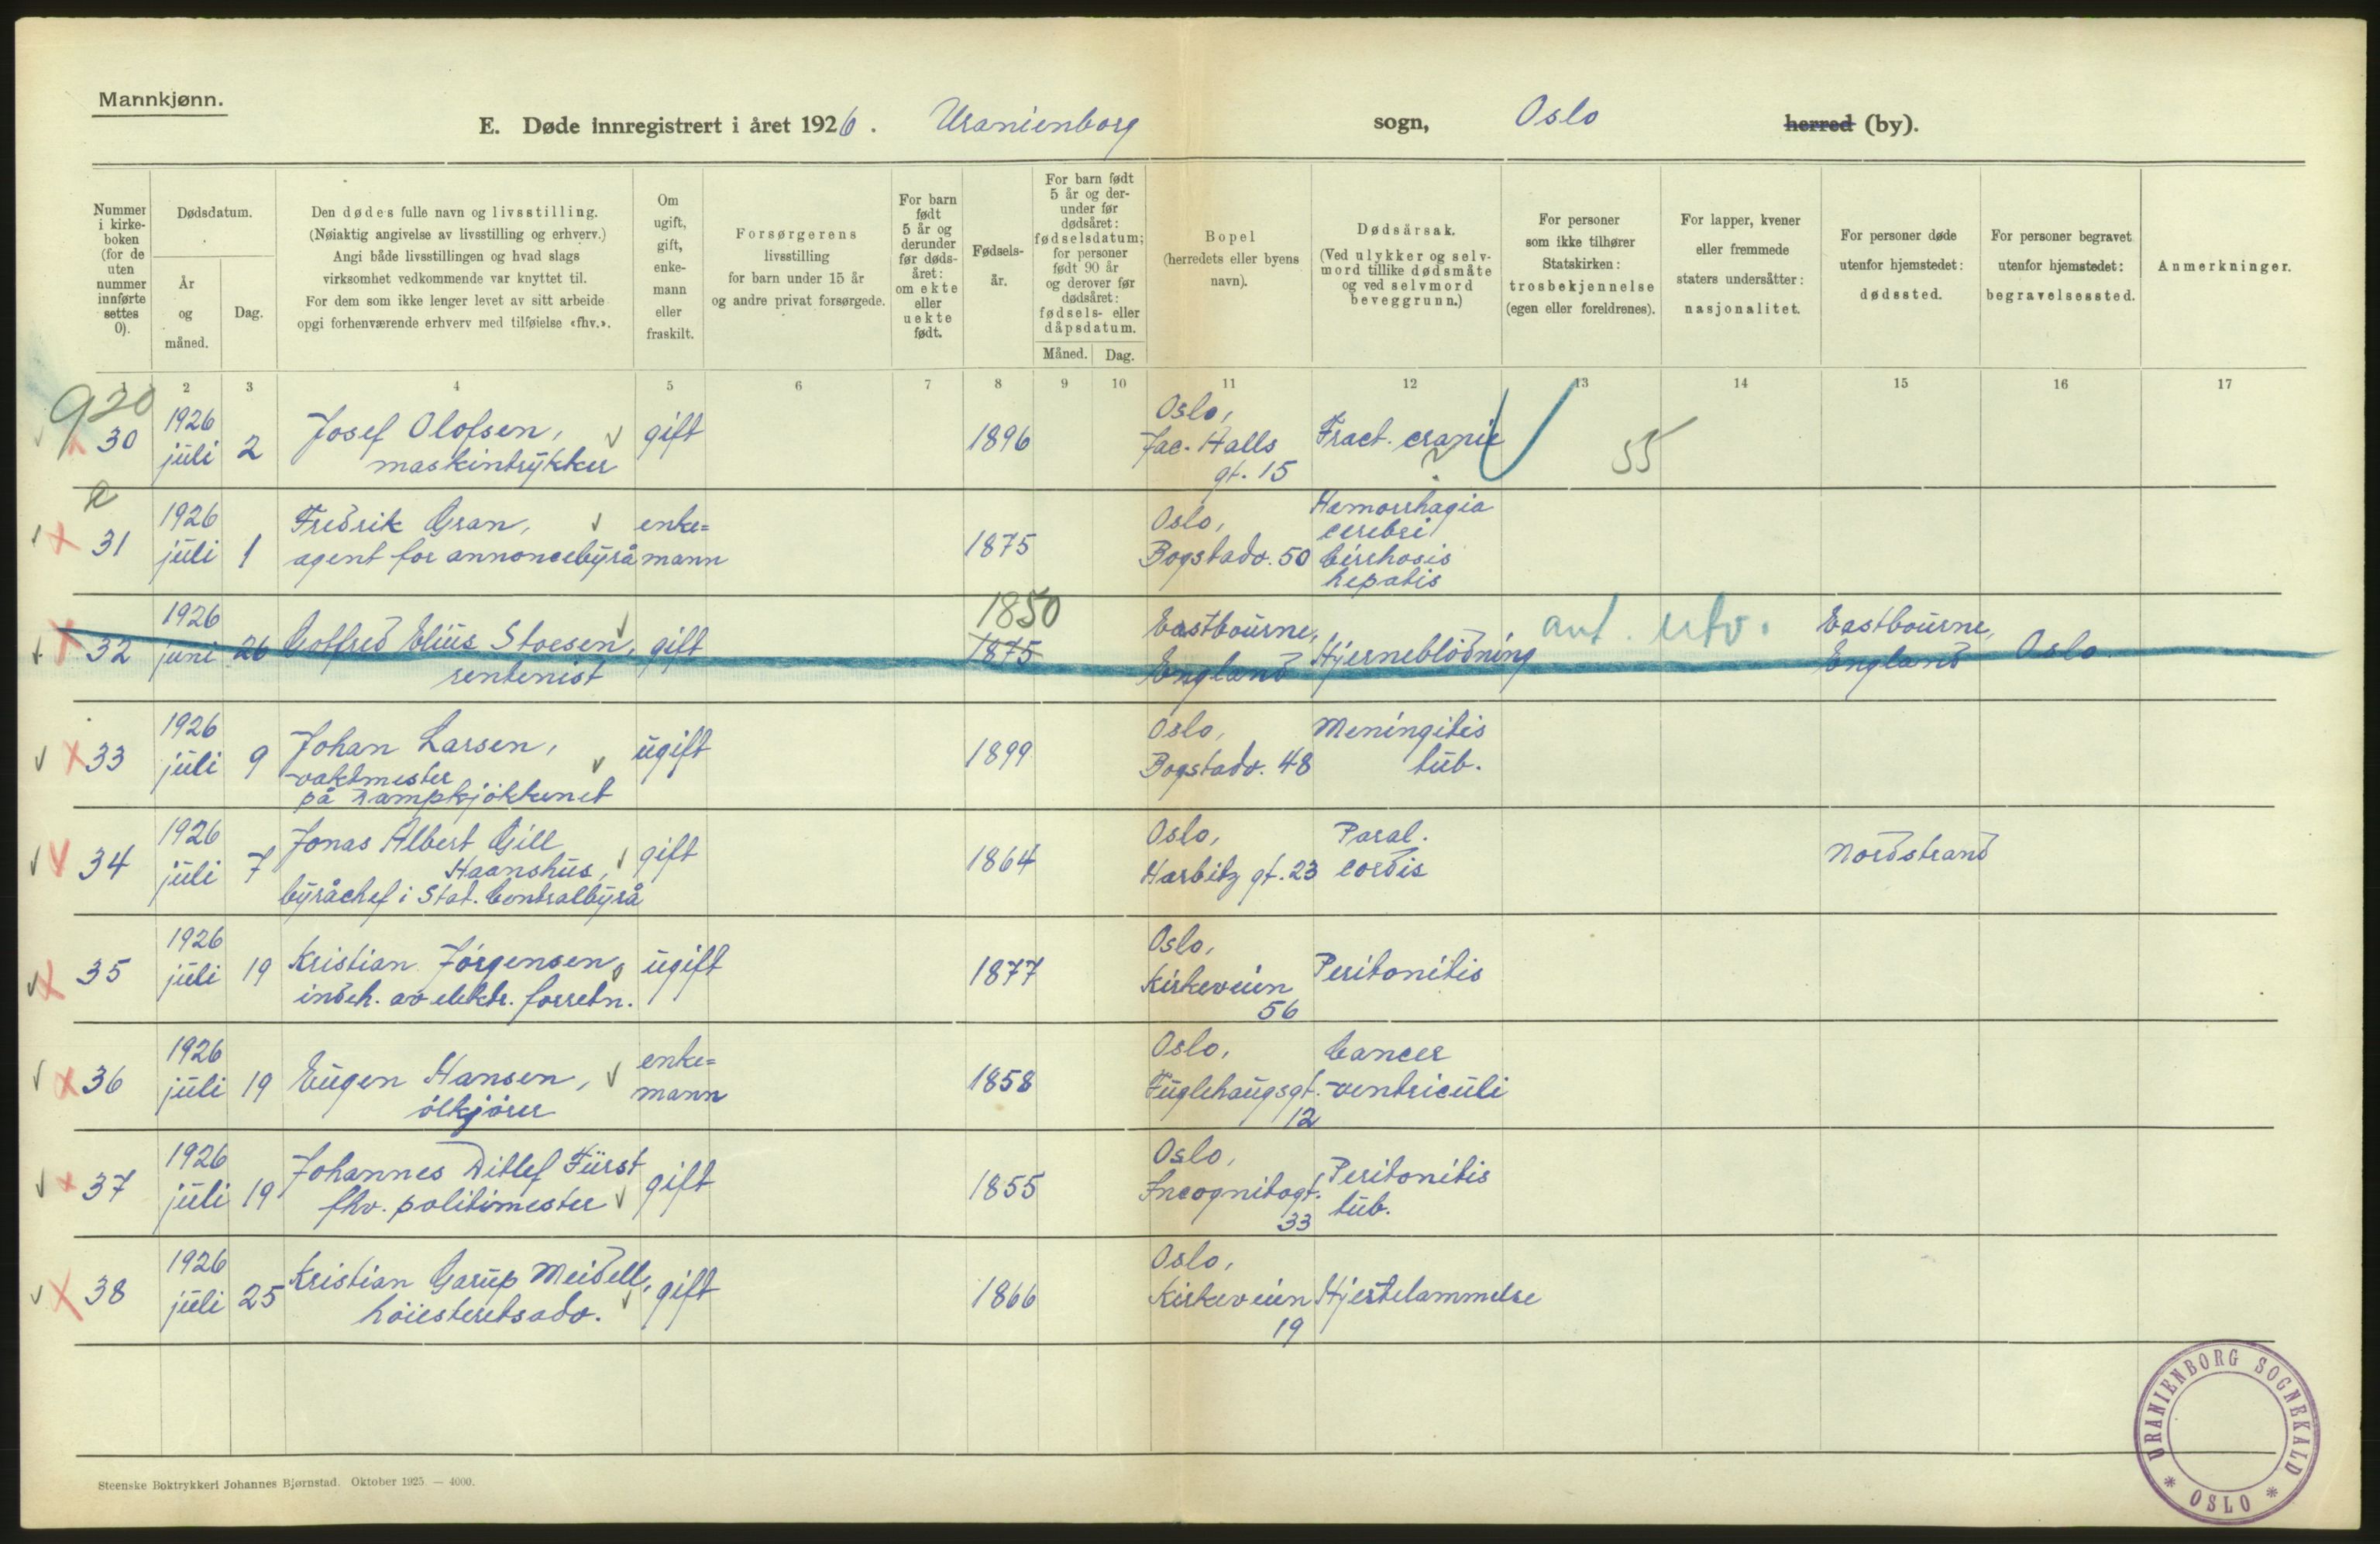 Mannkjønn.
E. Døde innregistrert i året 1926. Uranienborg sogn, Oslo herred (by).
Nummer i kirke-boken (for de uten nummer innførte settes 0).
Dødsdatum.
År og måned.
Dag.
Den dødes fulle navn og livsstilling.
(Nøiaktig angivelse av livsstilling og erhverv.)
Angi både livsstillingen og hvad slags
virksomhet vedkommende var knyttet til.
For dem som ikke lenger levet av sitt arbeide
opgi forhenværende erhverv med tilføielse «fhv.».
Om ugift, gift, enke-mann eller fraskilt.
Forsørgerens
livsstilling
for barn under 15 år
og andre privat forsørgede.
For barn født 5 år og derunder før døds-året: om ekte eller uekte født.
Fødsels-år.
For barn født 5 år og der-under før dødsåret: fødselsdatum; for personer født 90 år og derover før dødsåret: fødsels- eller dåpsdatum.
Måned. Dag.
Bopel
(herredets eller byens
navn).
Dødsårsak.
(Ved ulykker og selv-
mord tillike dødsmåte
og ved selvmord
beveggrunn.)
For personer
som ikke tilhører
Statskirken:
trosbekjennelse
(egen eller foreldrenes).
For lapper, kvener
eller fremmede
staters undersåtter:
nasjonalitet.
For personer døde
utenfor hjemstedet:
dødssted.
For personer begravet
utenfor hjemstedet:
begravelsessted.
Anmerkninger.
1 2 3 4 5 6 7 8 9 10 11 12 13 14 15 16 17
920
30 1926 juli 2 Josef Olofsen, maskintrykker gift 1896 Oslo, Jac. Halls gt. 15 Fract. cranie 55
31 1926 juli 1 Fredrik Gran, agent for annoncebyrå enke=mann 1875 Oslo, Bogstadv. 50 Hæmorrhagia cerebri Cirrhosis hepatis
32 1926 juni 26 Gotfred Elius Stoesen, rentenist gift 1850 1875 Eastbourne, England Hjerneblødning ant. utv. Eastbourne, England Oslo
33 1926 juli 9 Johan Larsen, vaktmester på Dampkjøkkenet ugift 1899 Oslo, Bogstadv. 48 Meningitis tub.
34 1926 juli 7 Jonas Albert Gill Haanshus, byråchef i Stat. Centralbyrå gift 1864 Oslo, Harbitz gt. 23 Paral. cordis Nordstrand
35 1926 juli 19 Kristian Jørgensen, indeh. av elektr. forretn. ugift 1877 Oslo, Kirkeveien 56 Peritonitis
36 1926 juli 19 Eugen Hansen, ølkjører enke=mann 1858 Oslo, Fuglehaugsgt. 12 Cancer ventriculi
37 1926 juli 19 Johannes Ditlef Fürst fhv. politimester gift 1855 Oslo, Incognitogt. 33 Peritonitis tub.
38 1926 juli 25 Kristian Garup Meidell, høiesteretsadv. gift 1866 Oslo, Kirkeveien 19 Hjertelammelse
Steenske Boktrykkeri Johannes Bjørnstad. Oktober 1925. — 4000.
URANIENBORG SOGNEKALD * OSLO *